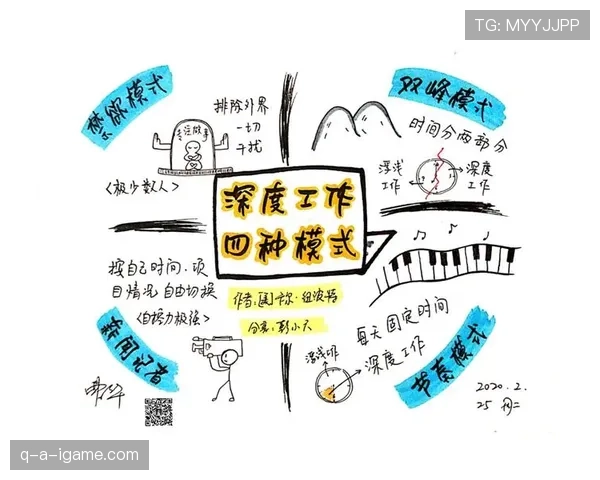 TG: MYYJJPP
禁欲模式
排除外界
一切
干扰
专注做事
<极少数人>
双峰模式
时间分两部分
浮浅
工作
深度
工作
深度工作
四种模式
作者:
·纽波特
分享:彭小六
按自己时间、项
目情况 自由切换
<自控力极强>
新闻记者
每天固定时间
深度工作
浮浅工作
节奏模式
2020.2.
25 周二
q-a-igame.com